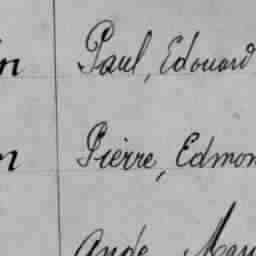 in Paul, Edouard
n Pièrre, Edmon